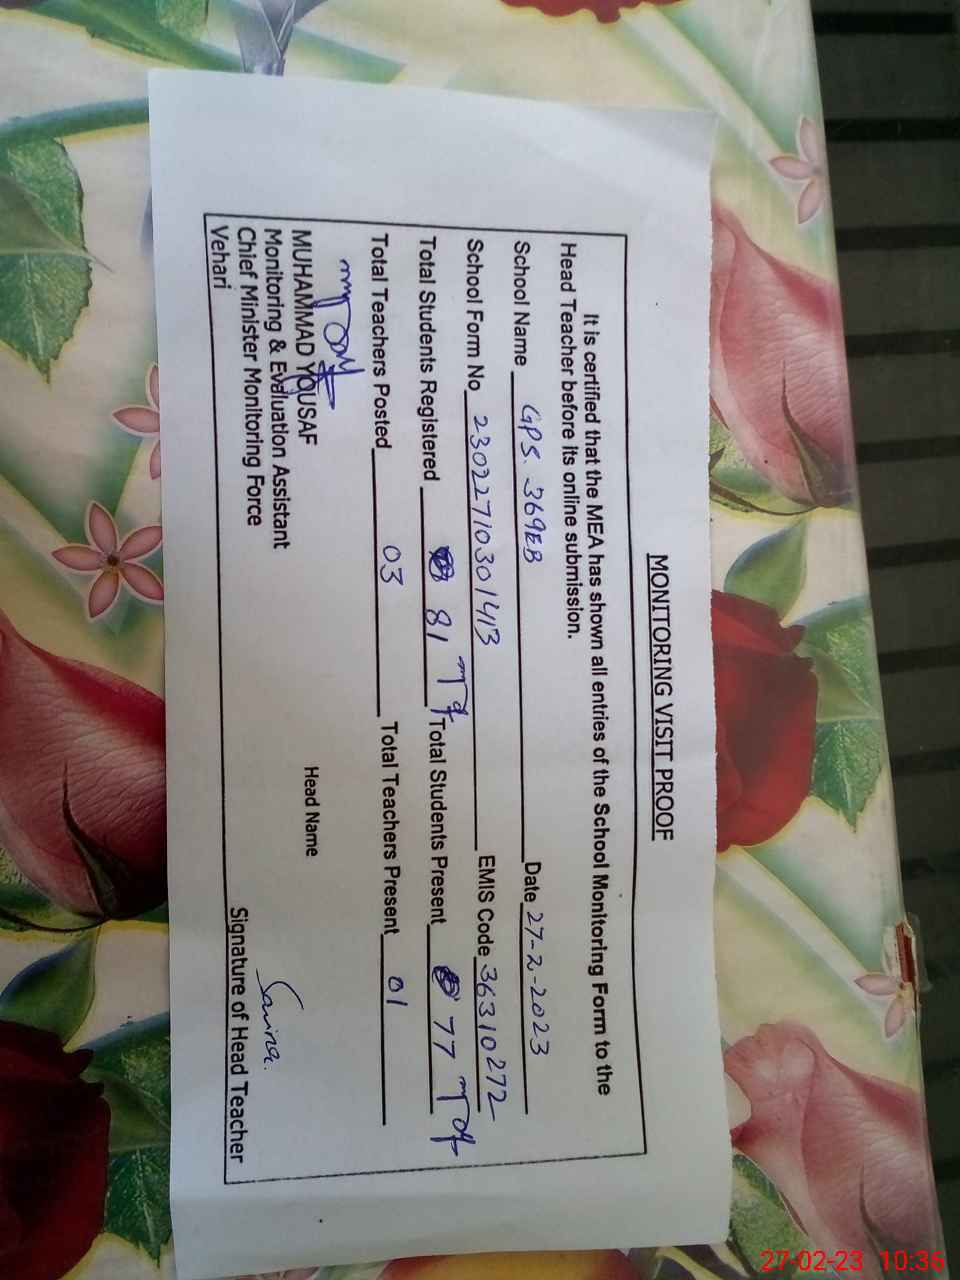 MONITORING VISIT PROOF
It is certified that the MEA has shown all entries of the School Monitoring Form to the
Head Teacher before its online submission.
School Name GPS. 369EB Date 27-2-2023
School Form No 23022710301413 EMIS Code 36310272
Total Students Registered 81 Total Students Present 77
Total Teachers Posted 03 Total Teachers Present 01
MUHAMMAD YOUSAF
Monitoring & Evaluation Assistant
Chief Minister Monitoring Force
Vehari
Head Name
Signature of Head Teacher
27-02-23 10:36